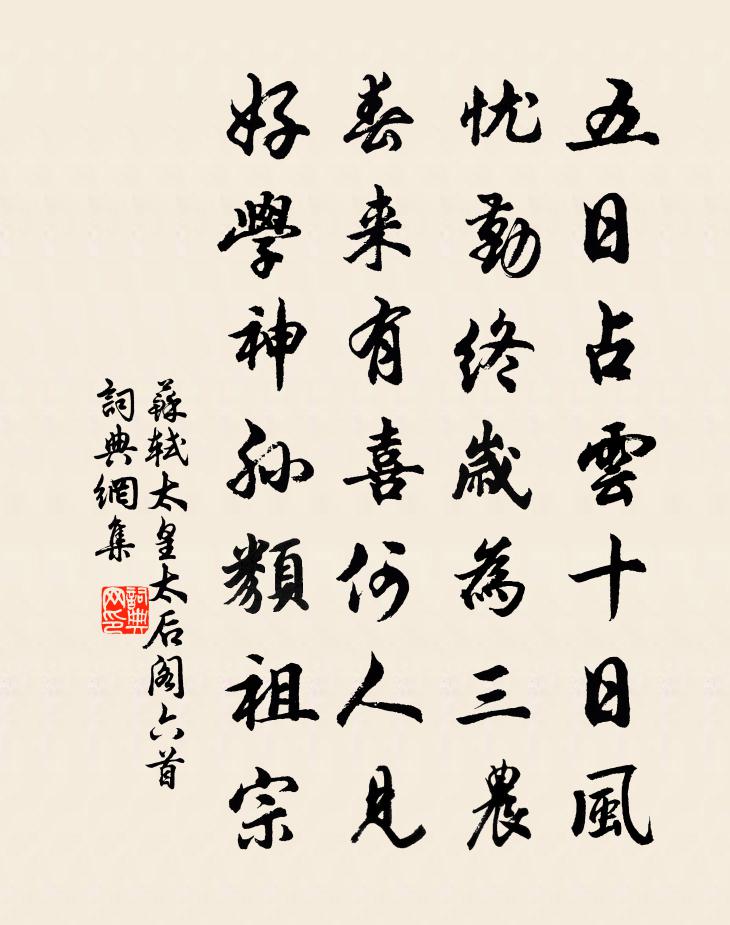 五日占雲十日風
忧勤终歲為三農
春来有喜何人見
好學神孙類祖宗
蘇軾太皇太后阁六首
詞典網集
詞典网印